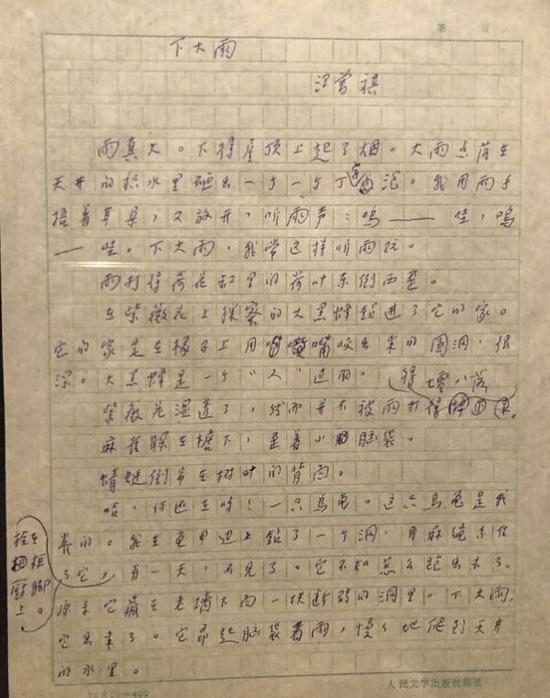 第　页
下大雨
汪曾祺
雨真大。下得屋顶上起了烟。大雨点落在
天井的积水里砸出一个一个丁字泡。我用两手
捂着耳朵，又放开，听雨声：呜——哇；呜
——哇。下大雨，我常这样听雨玩。
雨打得荷花缸里的荷叶东倒西歪。
在紫薇花上采蜜的大黑蜂钻进了它的家。
它的家是在椽子上用嘴咬出来的圆洞，很
深。大黑蜂是一个“人”过的。
紫薇花湿透了，然而并不被雨打得零八落
麻雀躲在檐下，歪着小脑袋。
蜻蜓倒吊在树叶的背面。
哈，你还在呀！一只乌龟。这只乌龟是我
养的。我在龟甲边上钻了一个洞，用麻绳系住
了它，拴在柜橱脚上。有一天，不见了。它不知怎么跑出去了。
原来它藏在老墙下面一块断砖的洞里。下大雨，
它出来了。它昂起脑袋看雨，慢慢地爬到天井
的水里。
人民文学出版社稿纸